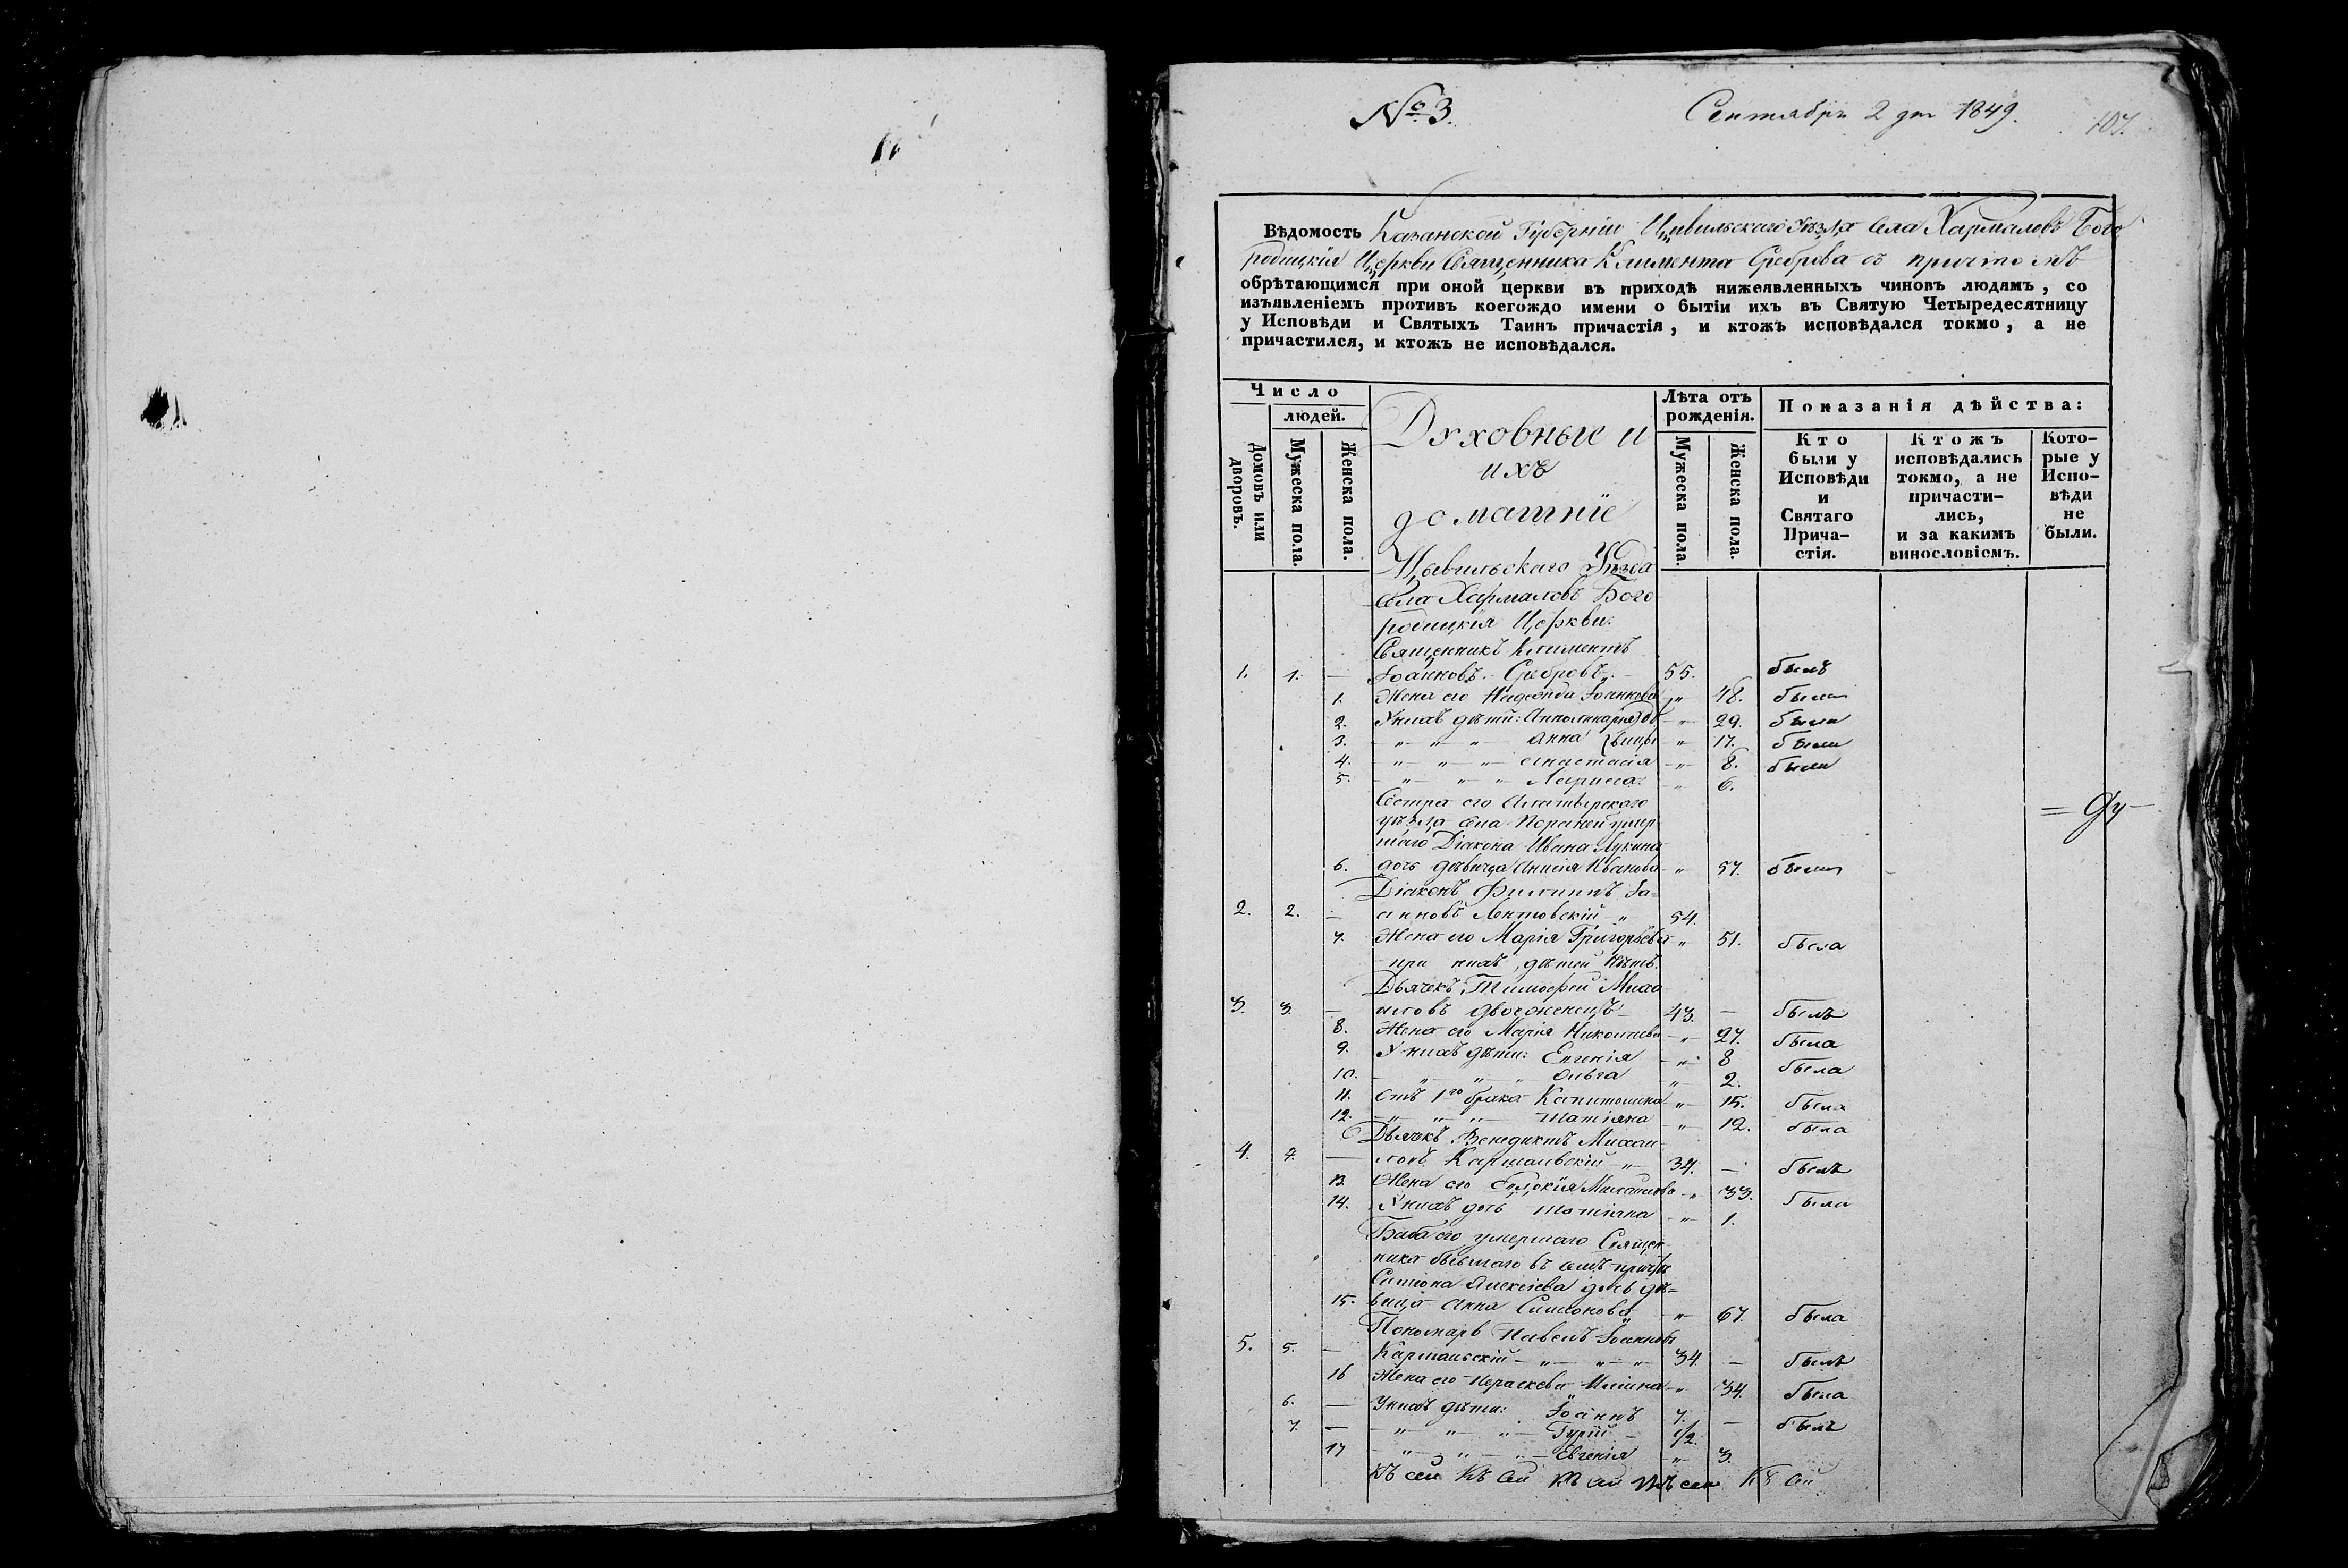 № 3. Сентября 2 дня 1849. 107.
Вѣдомость Казанской Губерніи Цывильскаго Уѣзда села Хармаловъ Бого
родицкія Церкви Священника Климента Среброва съ причтомъ
обрѣтающимся при оной церкви въ приходѣ нижеявленныхъ чиновъ людямъ, со
изъявленіемъ противъ коегождо имени о бытіи ихъ въ Святую Четыредесятницу
у Исповѣди и Святыхъ Таинъ причастія, и ктожъ исповѣдался токмо, а не
причастился, и ктожъ не исповѣдался.
Число
людей.
Домовъ или дворовъ.
Мужеска пола.
Женска пола.
Духовные и
ихъ
домашніе
Лѣта отъ
рожденія.
Мужеска пола.
Женска пола.
Показанія дѣйства:
Кто
были у
Исповѣди
и
Святаго
Прича-
стія.
Ктожъ
исповѣдались
токмо, а не
причасти-
лись,
и за какимъ
винословіемъ.
Кото-
рые у
Испо-
вѣди
не
были.
Цывильскаго Уѣзда
села Хармаловъ Бого
родицкія Церкви:
Священникъ Климентъ
1. 1. — Іоанновъ Сребровъ 55. былъ
1. Жена его Надежда Іоаннова " 48. была
2. У нихъ дѣти: Апполинарія дѣ " 29. была
3. " " " Анна вицы " 17. была
4. " " " Анастасія " 8. была
5. " " " Лариса " 6.
Сестра его Алатырскаго
уѣзда села умер
шаго Діакона Ивана Лукина
6. дочь дѣвица Анисія Иванова " 57. была
Діаконъ Филиппъ Іо-
2. 2. — анновъ Лентовскій " 54.
7. Жена его Марія Григорьева " 51. была
при нихъ дѣтей нѣтъ.
Дьячекъ Тимофей Миха
3. 3. — иловъ двоеженецъ 43. — былъ
8. Жена его Марія Николаева " 27. была
9. У нихъ дѣти: Евгенія " 8 была
10. " " " Ольга " 2.
11. Отъ 1го брака Капитолина " 15. была
12. " " " Татіяна " 12. была
Дьячекъ Венедиктъ Михаи
4. 4. — ловъ Кармальскій " 34. — былъ
13. Жена его Евдокія Михаилова " 33. была
14. У нихъ дочь Татіана " 1.
Баба его умершаго Священ
ника бывшаго въ семъ причтѣ
Симеона Алексѣева дочь дѣ-
15. вица Анна Симеонова " 67. была
Пономарь Павелъ Іоанновъ
5. 5. — Кармальскій " " " 34. — былъ
16 Жена его Параскева " 34. была
6. — У нихъ дѣти: Іоаннъ 7. — былъ
7. — " " " Гурій 1/2.
17 " " " Евгенія " 3.
Къ сей Къ сей Къ сей Къ сей Къ сей